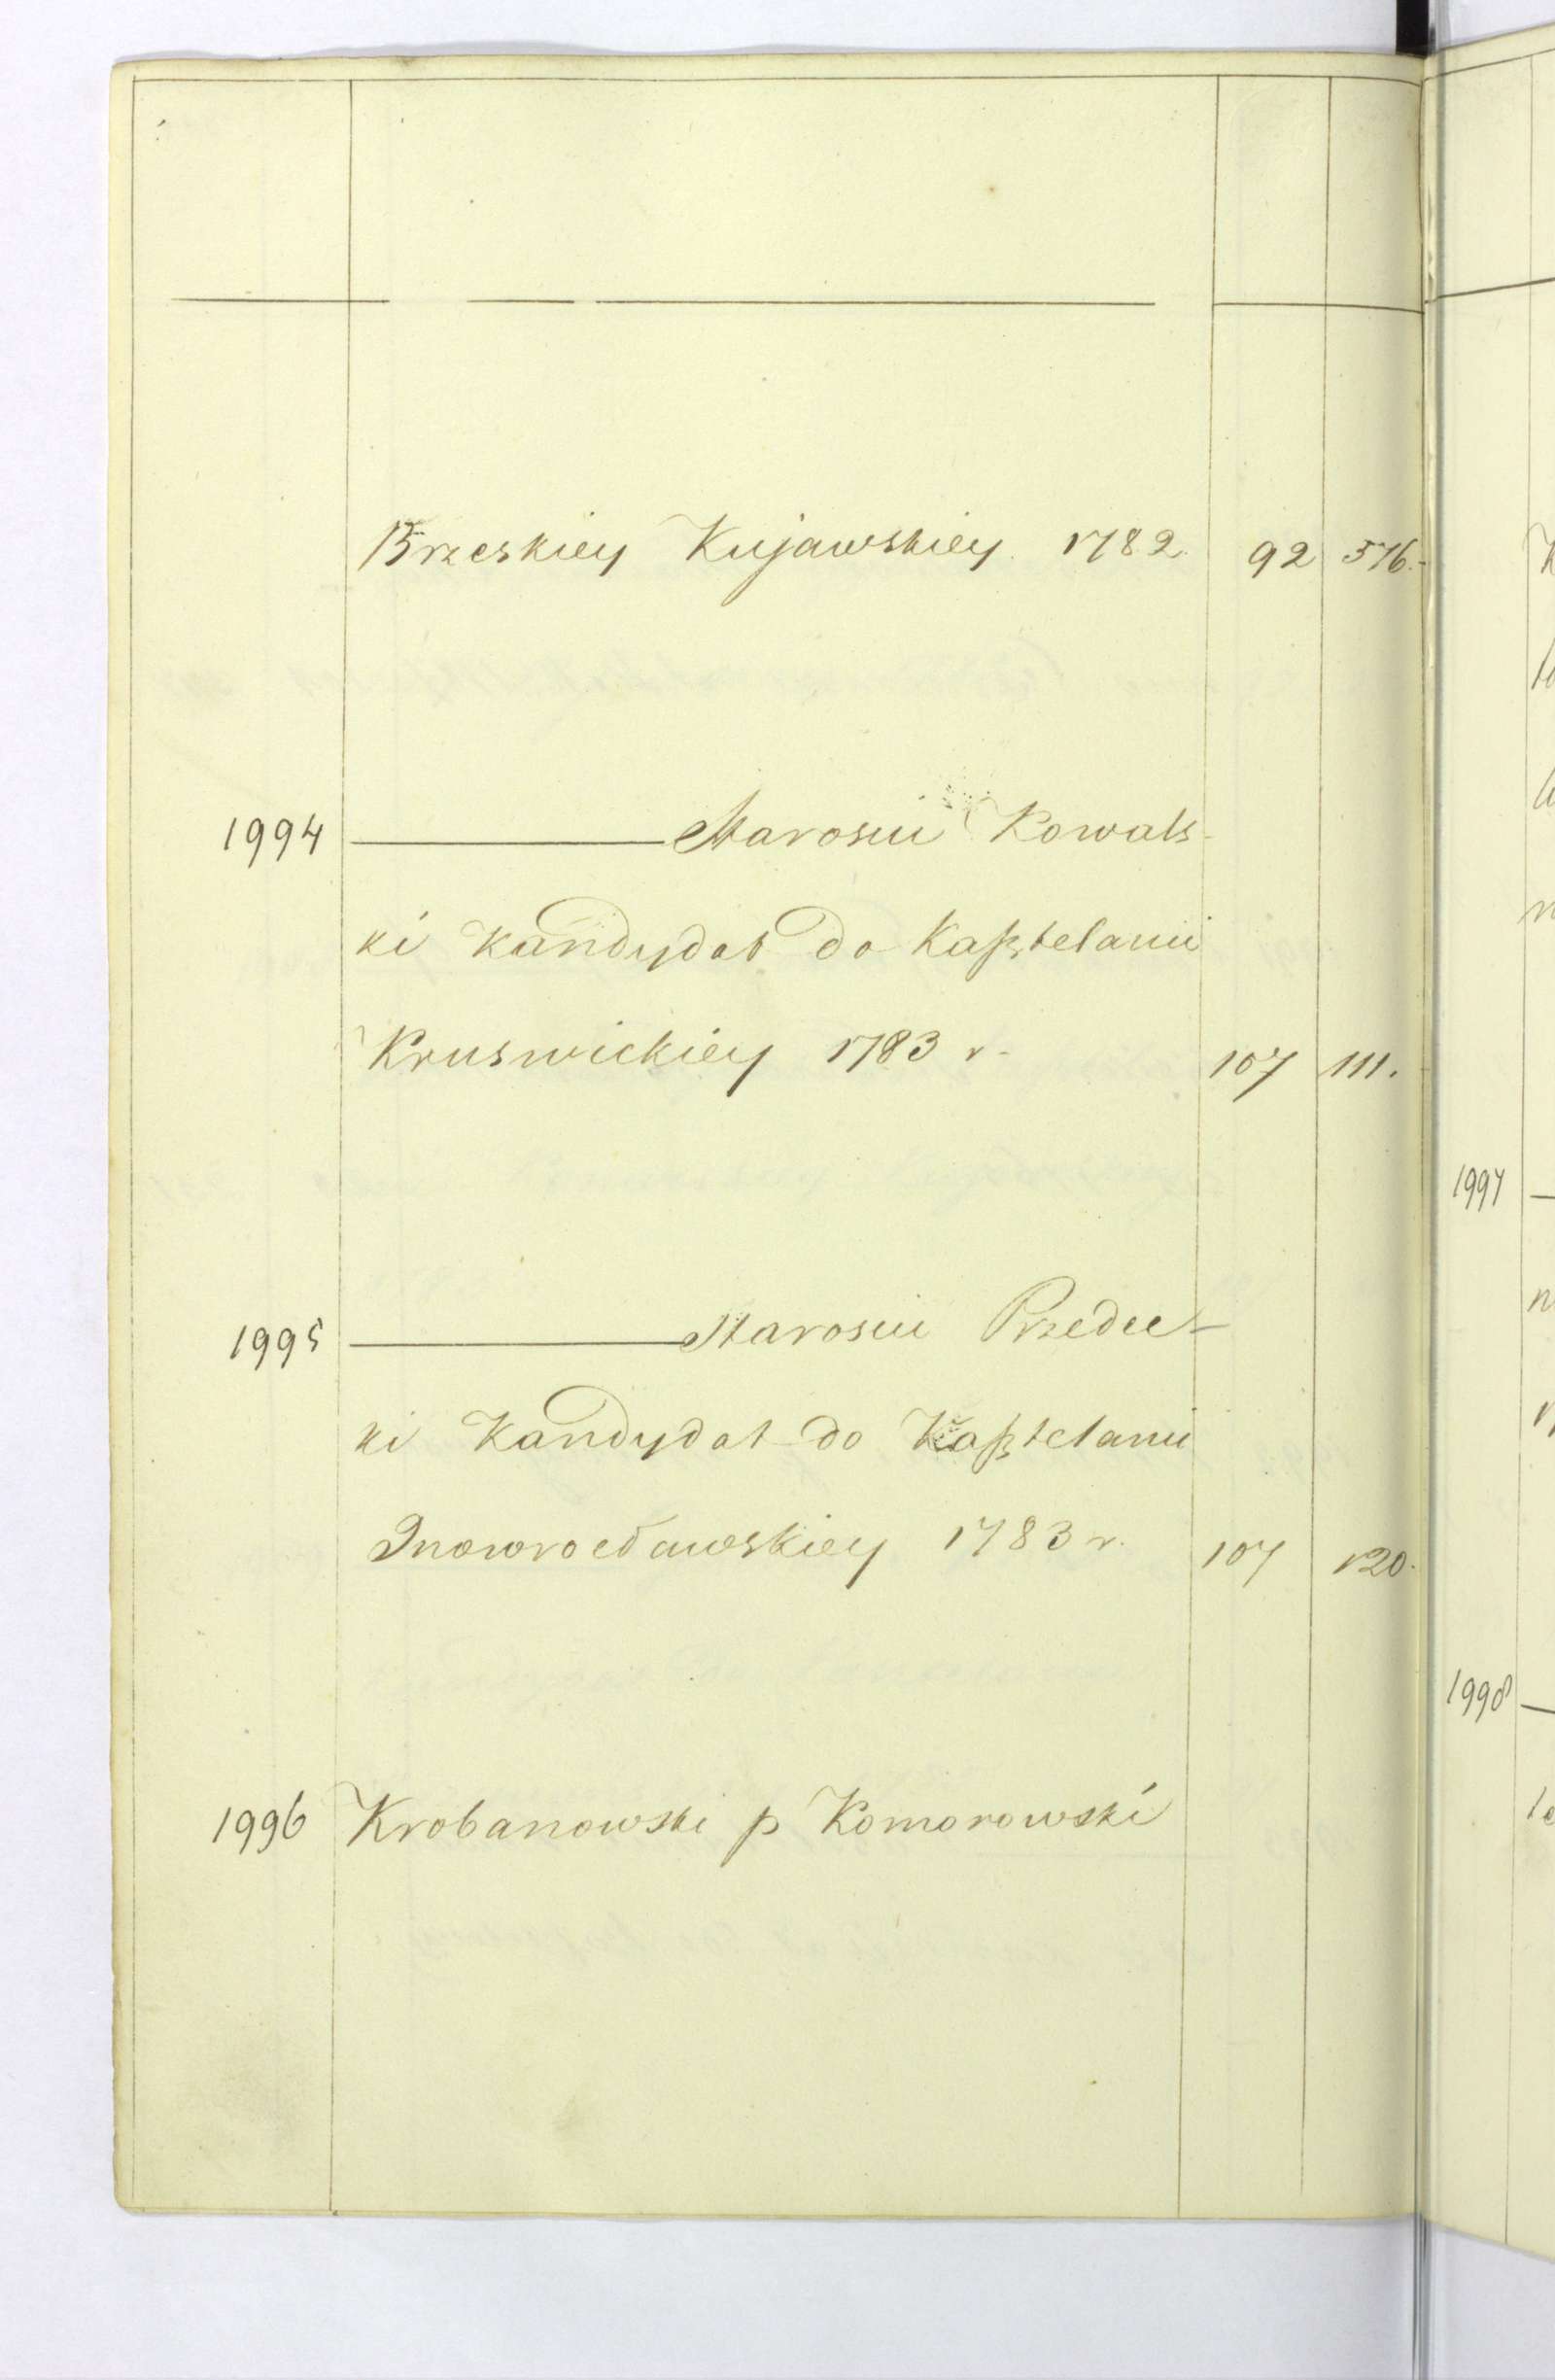 Brzeskiey Kujawskiey 1782. 92 576.-
1994 ——— Starosci Kowals-
ki Kandydat do Kasztelanii
Kruswickiey 1783 r. 107 111.
1995 ——— Starosci Przedec-
ki Kandydat do Kasztelanii
Inowrocławskiey 1783 r. 107 120.
1996 Krobanowski p Komorowski
1997
1998